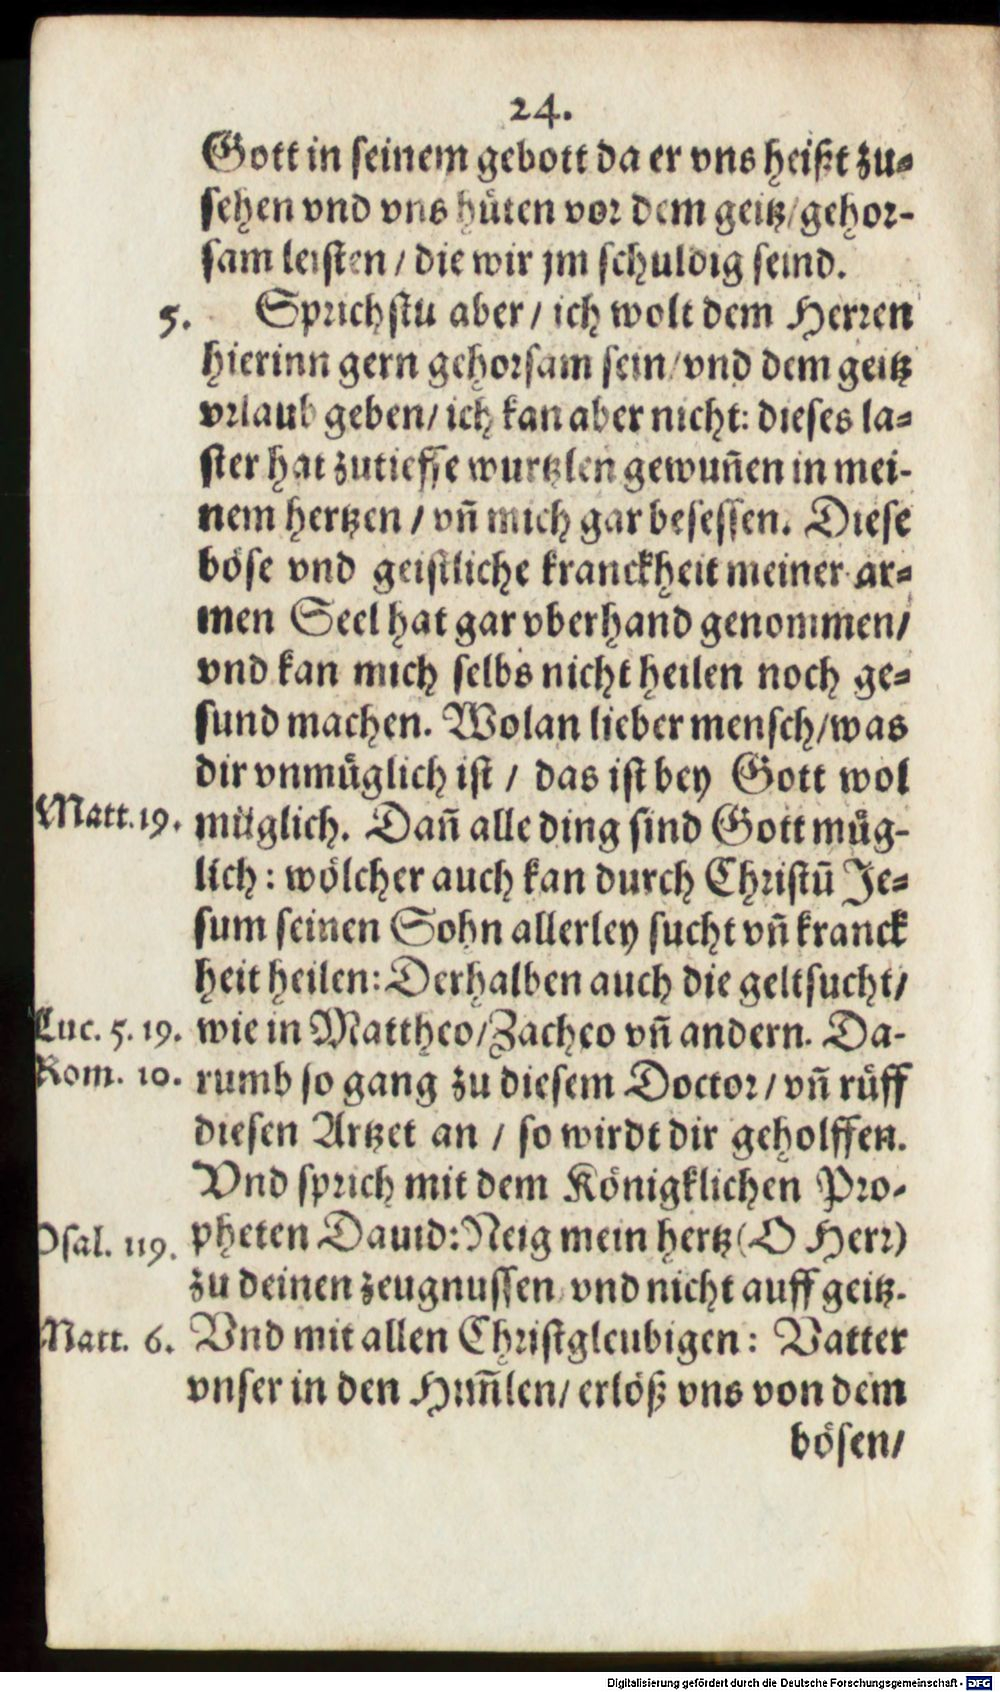 24.
Gott in seinem gebott da er vns heißt zu-
sehen vnd vns hüten vor dem geitz/gehor-
sam leisten / die wir jm schuldig seind.
5. Sprichstu aber / ich wolt dem Herren
hierinn gern gehorsam sein/vnd dem geitz
vrlaub geben/ ich kan aber nicht: dieses la-
ster hat zutieffe wurtzlen gewuñen in mei-
nem hertzen / vñ mich gar besessen. Diese
böse vnd geistliche kranckheit meiner ar-
men Seel hat gar vberhand genommen/
vnd kan mich selbs nicht heilen noch ge-
sund machen. Wolan lieber mensch/was
dir vnmüglich ist / das ist bey Gott wol
Matt.19. müglich. Dañ alle ding sind Gott müg-
lich: wölcher auch kan durch Christū Je-
sum seinen Sohn allerley sucht vñ kranck
heit heilen: Derhalben auch die geltsucht/
Luc. 5. 19. wie in Mattheo/Zacheo vñ andern. Da-
Rom. 10. rumb so gang zu diesem Doctor / vñ rüff
diesen Artzet an / so wirdt dir geholffen.
Vnd sprich mit dem Königklichen Pro-
Psal. 119. pheten Dauid: Neig mein hertz (O Herr)
zu deinen zeugnussen vnd nicht auff geitz.
Matt. 6. Vnd mit allen Christgleubigen: Vatter
vnser in den Him̃len/ erlöß vns von dem
bösen/
Digitalisierung gefördert durch die Deutsche Forschungsgemeinschaft - DFG